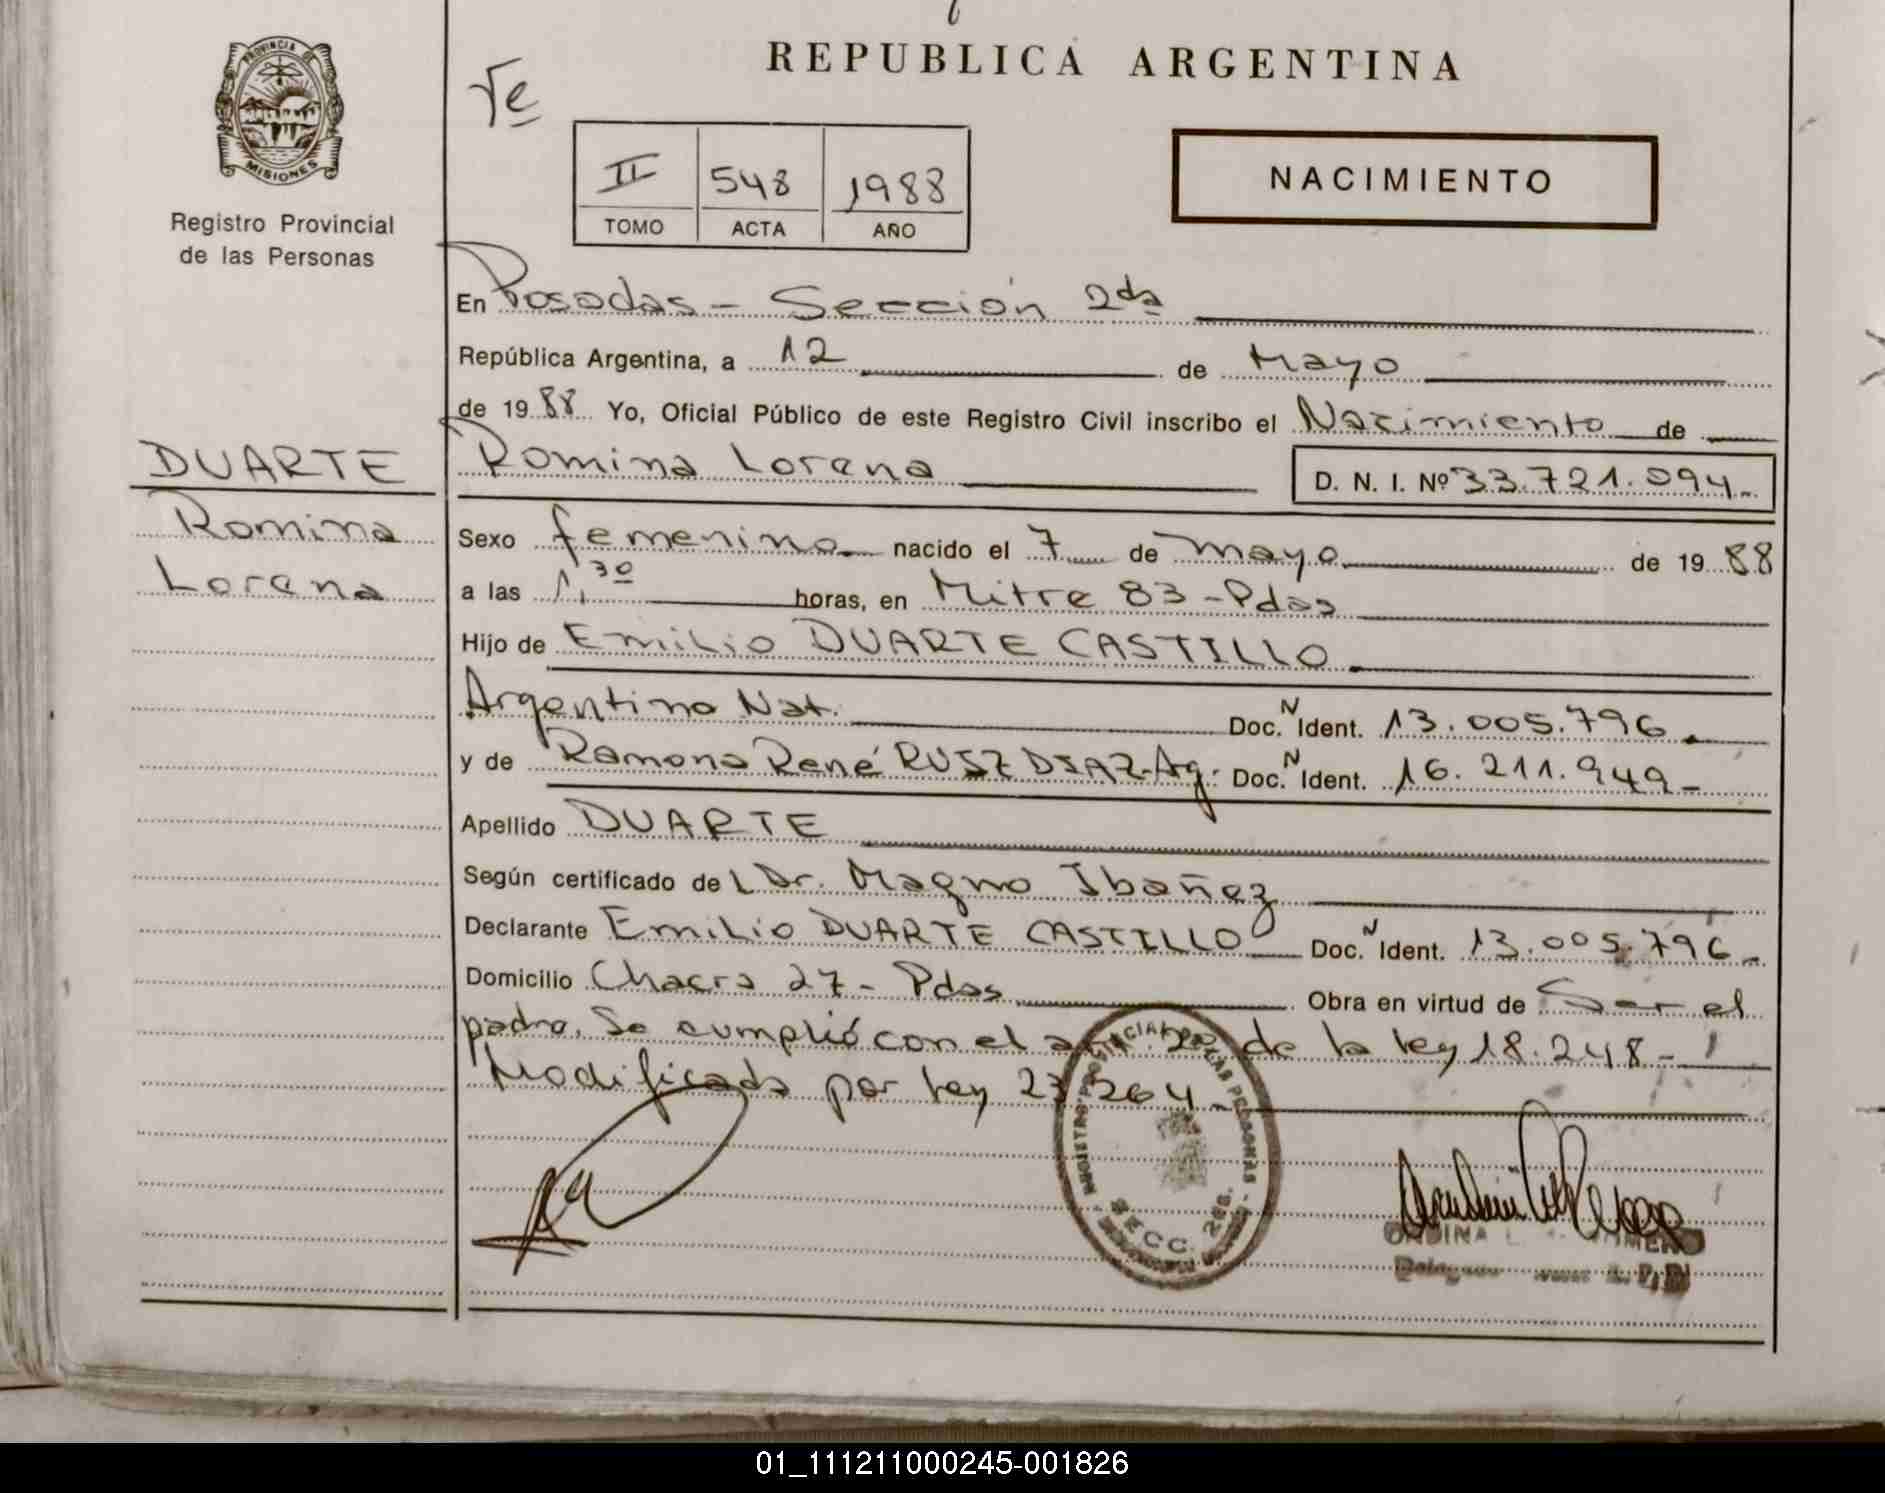 REPUBLICA ARGENTINA
PROVINCIA DE
MISIONES
Registro Provincial
de las Personas
II 548 1988
TOMO ACTA AÑO
NACIMIENTO
En Posadas - Sección 2da
República Argentina, a 12 de Mayo
de 1988 Yo, Oficial Público de este Registro Civil inscribo el Nacimiento de
DUARTE
Romina
Lorena
Romina Lorena D. N. I. Nº 33.721.094.-
Sexo femenino nacido el 7 de mayo de 1988
a las 1,30 horas, en Mitre 83 - Pdas
Hijo de Emilio DUARTE CASTILLO
Argentino Nat. Doc. N Ident. 13.005.796.
y de Ramona René RUIZ DIAZ-Arg. Doc. N Ident. 16.211.949-
Apellido DUARTE
Según certificado de L Dr. Magno Ibañez
Declarante Emilio DUARTE CASTILLO Doc. N Ident. 13.005.796.-
Domicilio Chacra 27 - Pdas Obra en virtud de Ser el
padre. Se cumplió con el art. 20 de la ley 18.248-
Modificada por ley 23264-
SECC. 2da.
01_111211000245-001826